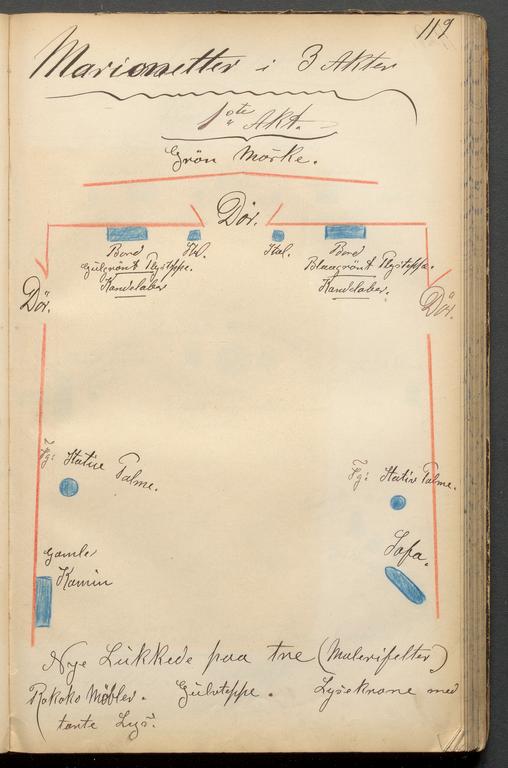 119
Marionetter i 3 Akter
1ste Akt.
Grön Mörke.
Dör.
Bord
Gulgrönt Plysteppe.
Kandelaber
Stol.
Stol.
Bord
Blaagrönt Plysteppe.
Kandelaber.
Dör.
Dör.
Fg: Stative Palme.
Fg: Stative Palme.
Gamle
Kamin
Sofa.
Nye Lukkede paa tre (Malerifelter)
Rokoko Möbler. Gulvteppe. Lysekrone med
tente Lys.